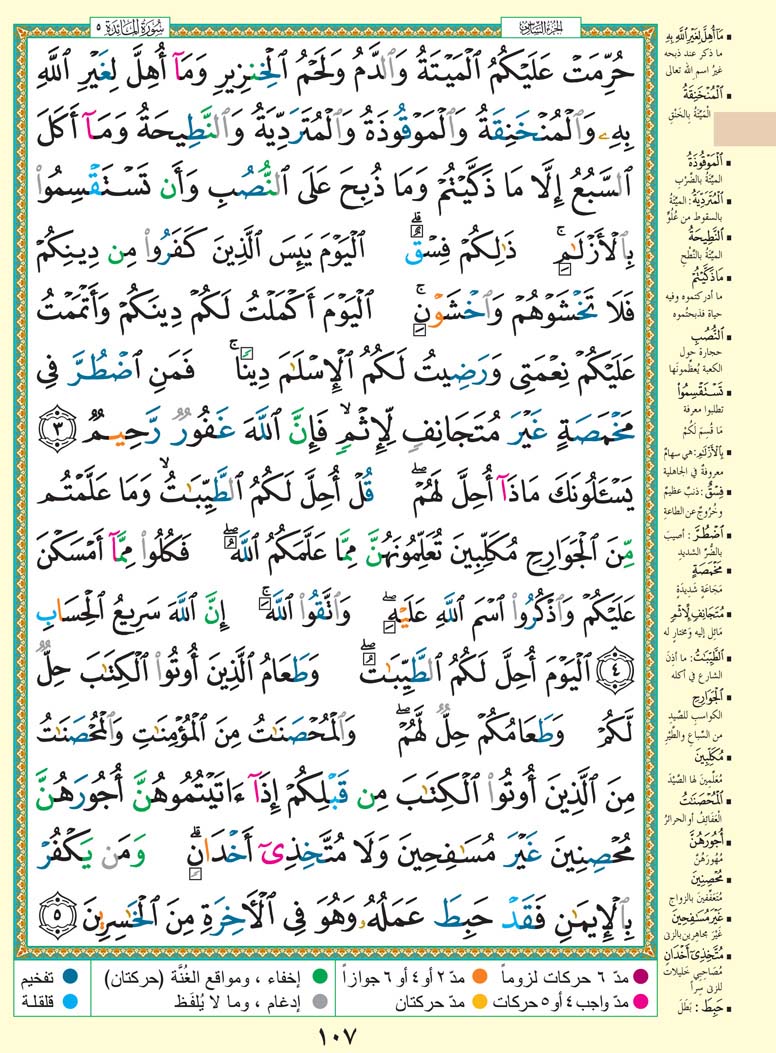 سُورَةُ المَائدَة ٥
الجزء السادس
حُرِّمَتْ عَلَيْكُمُ ٱلْمَيْتَةُ وَٱلدَّمُ وَلَحْمُ ٱلْخِنزِيرِ وَمَآ أُهِلَّ لِغَيْرِ ٱللَّهِ
بِهِۦ وَٱلْمُنْخَنِقَةُ وَٱلْمَوْقُوذَةُ وَٱلْمُتَرَدِّيَةُ وَٱلنَّطِيحَةُ وَمَآ أَكَلَ
ٱلسَّبُعُ إِلَّا مَا ذَكَّيْتُمْ وَمَا ذُبِحَ عَلَى ٱلنُّصُبِ وَأَن تَسْتَقْسِمُوا۟
بِٱلْأَزْلَٰمِ ۚ ذَٰلِكُمْ فِسْقٌ ۗ ٱلْيَوْمَ يَئِسَ ٱلَّذِينَ كَفَرُوا۟ مِن دِينِكُمْ
فَلَا تَخْشَوْهُمْ وَٱخْشَوْنِ ۚ ٱلْيَوْمَ أَكْمَلْتُ لَكُمْ دِينَكُمْ وَأَتْمَمْتُ
عَلَيْكُمْ نِعْمَتِى وَرَضِيتُ لَكُمُ ٱلْإِسْلَٰمَ دِينًا ۚ فَمَنِ ٱضْطُرَّ فِى
مَخْمَصَةٍ غَيْرَ مُتَجَانِفٍ لِّإِثْمٍ ۙ فَإِنَّ ٱللَّهَ غَفُورٌ رَّحِيمٌ ٣
يَسْـَٔلُونَكَ مَاذَآ أُحِلَّ لَهُمْ ۖ قُلْ أُحِلَّ لَكُمُ ٱلطَّيِّبَٰتُ ۙ وَمَا عَلَّمْتُم
مِّنَ ٱلْجَوَارِحِ مُكَلِّبِينَ تُعَلِّمُونَهُنَّ مِمَّا عَلَّمَكُمُ ٱللَّهُ ۖ فَكُلُوا۟ مِمَّآ أَمْسَكْنَ
عَلَيْكُمْ وَٱذْكُرُوا۟ ٱسْمَ ٱللَّهِ عَلَيْهِ ۖ وَٱتَّقُوا۟ ٱللَّهَ ۚ إِنَّ ٱللَّهَ سَرِيعُ ٱلْحِسَابِ
٤ ٱلْيَوْمَ أُحِلَّ لَكُمُ ٱلطَّيِّبَٰتُ ۖ وَطَعَامُ ٱلَّذِينَ أُوتُوا۟ ٱلْكِتَٰبَ حِلٌّ
لَّكُمْ وَطَعَامُكُمْ حِلٌّ لَّهُمْ ۖ وَٱلْمُحْصَنَٰتُ مِنَ ٱلْمُؤْمِنَٰتِ وَٱلْمُحْصَنَٰتُ
مِنَ ٱلَّذِينَ أُوتُوا۟ ٱلْكِتَٰبَ مِن قَبْلِكُمْ إِذَآ ءَاتَيْتُمُوهُنَّ أُجُورَهُنَّ
مُحْصِنِينَ غَيْرَ مُسَٰفِحِينَ وَلَا مُتَّخِذِىٓ أَخْدَانٍ ۗ وَمَن يَكْفُرْ
بِٱلْإِيمَٰنِ فَقَدْ حَبِطَ عَمَلُهُۥ وَهُوَ فِى ٱلْـَٔاخِرَةِ مِنَ ٱلْخَٰسِرِينَ ٥
مَا أُهِلَّ لِغَيْرِ اللَّهِ بِهِ
ما ذكر عند ذبحه
غيرُ اسم الله تعالى
ٱلْمُنْخَنِقَةُ
الْمَيْتَةُ بِالخَنْقِ
ٱلْمَوْقُوذَةُ
الميْتَةُ بالضَّرْبِ
ٱلْمُتَرَدِّيَةُ : الميْتَةُ
بالسقوط من عُلُوٍّ
ٱلنَّطِيحَةُ
الميْتَةُ بالنَّطْحِ
مَا ذَكَّيْتُمْ
ما أدركتموه وفيه
حياة فذبحتُموه
ٱلنُّصُبِ
حجارة حول
الكعبة يُعظّمونَها
تَسْتَقْسِمُوا۟
تطلبوا معرفة
مَا قُسِمَ لَكُمْ
بِٱلْأَزْلَٰمِ : هي سهامٌ
معروفةٌ في الجاهلية
فِسْقٌ : ذنبٌ عظيمٌ
وخُروجٌ عن الطاعةِ
ٱضْطُرَّ : أُصيبَ
بالضُّرِّ الشديدِ
مَخْمَصَةٍ
مَجَاعَةٍ شَدِيدَةٍ
مُتَجَانِفٍ لِّإِثْمٍ
مَائِلٍ إليه ومختارٍ له
ٱلطَّيِّبَٰتُ : ما أَذِنَ
الشارع في أكله
ٱلْجَوَارِحِ
الكواسبِ للصَّيدِ
من السِّباعِ والطَّيْرِ
مُكَلِّبِينَ
مُعَلِّمينَ لها الصَّيْدَ
ٱلْمُحْصَنَٰتُ
العَفَائِفُ أو الحرائرُ
أُجُورَهُنَّ
مُهُورَهُنَّ
مُحْصِنِينَ
مُتَعَفِّفينَ بالزواج
غَيْرَ مُسَٰفِحِينَ
غَيْرَ مجاهرينَ بالزنى
مُتَّخِذِىٓ أَخْدَانٍ
مُصَاحِبي خليلاتٍ
للزنى سِراً
حَبِطَ : بَطَلَ
مدّ ٦ حركات لزوماً مدّ ٢ أو ٤ أو ٦ جوازاً إخفاء ، ومواقع الغُنَّة (حركتان) تفخيم
مدّ واجب ٤ أو ٥ حركات مدّ حركتان إدغام ، وما لا يُلفَظ قلقلة
١٠٧